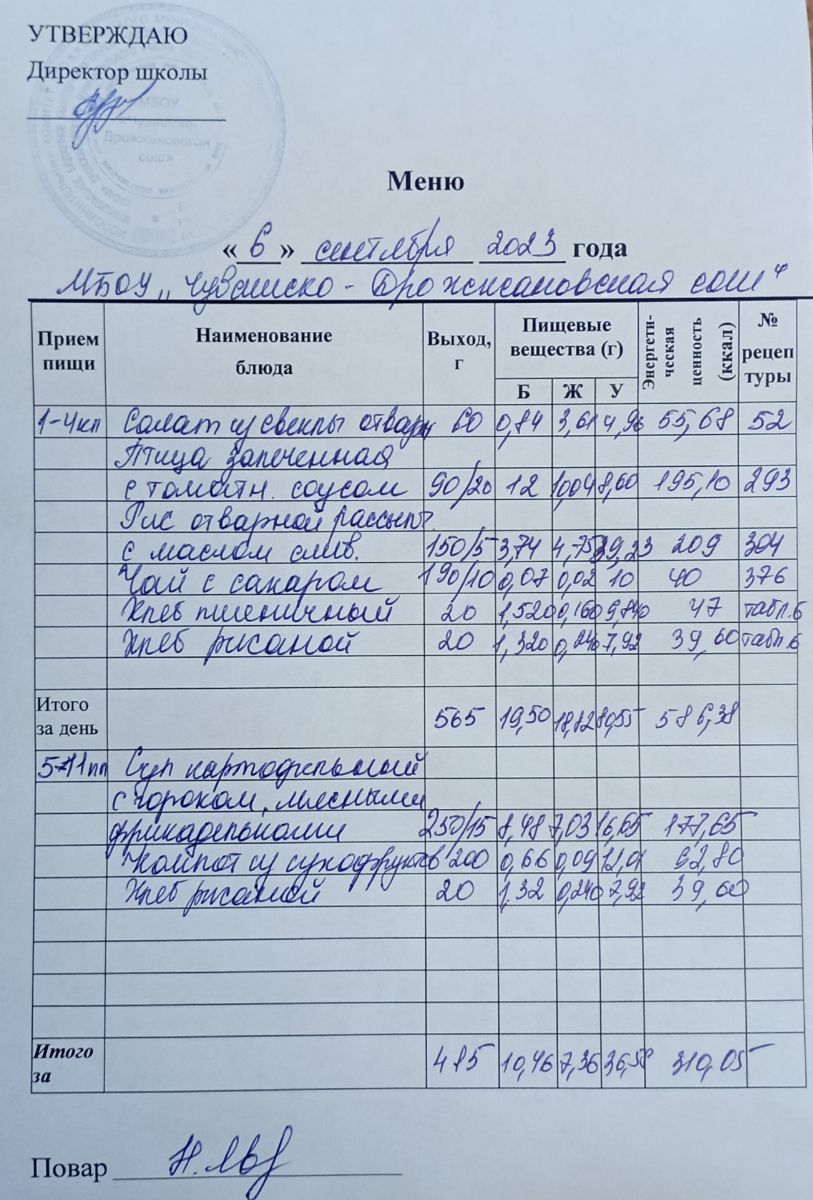 УТВЕРЖДАЮ
Директор школы
МБОУ
Дрожжановская
сош»
Меню
« 6 » сентября 2023 года
МБОУ „Чувашско - Дрожжановская сош"
Прием пищи Наименование блюда Выход, г Пищевые вещества (г) Б Ж У Энергети-ческая ценность (ккал) № рецеп туры
1-4кл Салат из свеклы отварн 60 0,84 3,61 4,96 55,68 52
Птица запеченная
с томатн. соусом 90/20 12 10,04 8,60 195,10 293
Рис отварной рассыпч.
с маслом слив. 150/5 3,74 4,75 39,23 209 304
Чай с сахаром 190/10 0,07 0,02 10 40 376
Хлеб пшеничный 20 1,520 0,160 9,840 47 табл.6
Хлеб ржаной 20 1,320 0,240 7,92 39,60 табл.6
Итого за день 565 19,50 18,82 80,55 586,38
5-11кл Суп картофельный
с горохом, мясными
фрикадельками 250/15 8,48 7,03 16,65 177,65
Компот из сухофруктов 200 0,66 0,09 12,01 92,80
Хлеб ржаной 20 1,32 0,240 7,92 39,60
Итого за 485 10,46 7,36 36,58 310,05
Повар